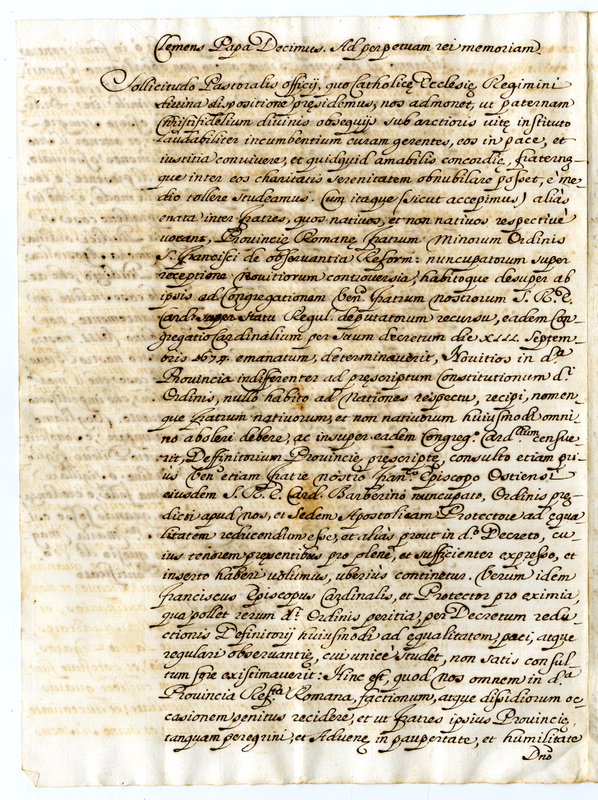 Clemens Papa Decimus. Ad perpetuam rei memoriam.
Sollicitudo Pastoralis officij, quo Catholicę Ecclesię Regimini
divina dispositione pręsidemus, nos admonet, ut paternam
Christifidelium divinis obsequijs sub arctioris vitę instituto
laudabiliter incumbentium curam gerentes, eos in pace, et
iustitia convivere, et quidquid amabilis concordię, fraterną-
que inter eos charitatis serenitatem obnubilare posset, è me-
dio tollere studeamus. Cum itaque (sicut accepimus) alias
enata inter fratres, quos nativos, et non nativos respectivè
vocant, Provincię Romanę fratrum Minorum Ordinis
S. Francisci de observantia Reform: nuncupatorum super
receptione Novitiorum controversia, habitoque desuper ab
ipsis ad Congregationem Ven. fratrum nostrorum S. R. E.
Card. super Statu Regul: deputatorum recursu, eadem Con-
gregatio Cardinalium per suum decretum die XIII. Septem-
bris 1674. emanatum, determinaverit, Novitios in d.a
Provincia indifferenter ad pręscriptum Constitutionum d.i
Ordinis, nullo habito ad Nationes respectu, recipi, nomen-
que fratrum nativorum, et non nativorum huiusmodi omni-
no aboleri debere, ac insuper eadem Congreg.o Card.lium censue-
rit, Definitorium Provincię pręscriptę, consulto etiam pri-
us Ven. etiam fratre nostro Fran.co Episcopo Ostiensi
eiusdem S. R. E. Card. Barberino nuncupato, Ordinis prę-
dicti apud nos, et Sedem Apostolicam Protectore ad equa-
litatem reducendum esse, et aliàs prout in d.o Decreto, cu-
ius tenorem pręsentibus pro plenè, et sufficienter expresso, et
inserto haberi volumus, uberiùs continetur. Verum idem
Franciscus Episcopus Cardinalis, et Protector pro eximia,
qua pollet rerum d.i Ordinis peritia, per Decretum redu-
ctionis Definitorij huiusmodi ad equalitatem, paci, atque
regulari observantię, cui unicè studet, non satis consul-
tum fore existimaverit: Hinc est, quod nos omnem in d.a
Provincia Ref.ta Romana, factionum, atque dissidiorum oc-
casionem penitus recidere, et ut fratres ipsius Provincię,
tanquam peregrini, et Advenę in paupertate, et humilitate
Dno